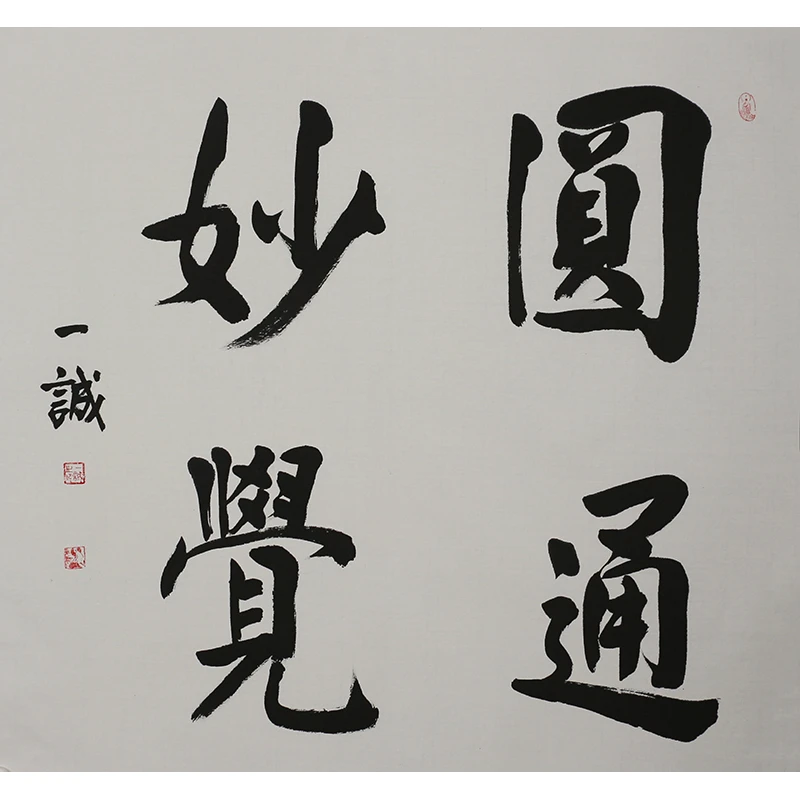 圓通
妙覺
一誠